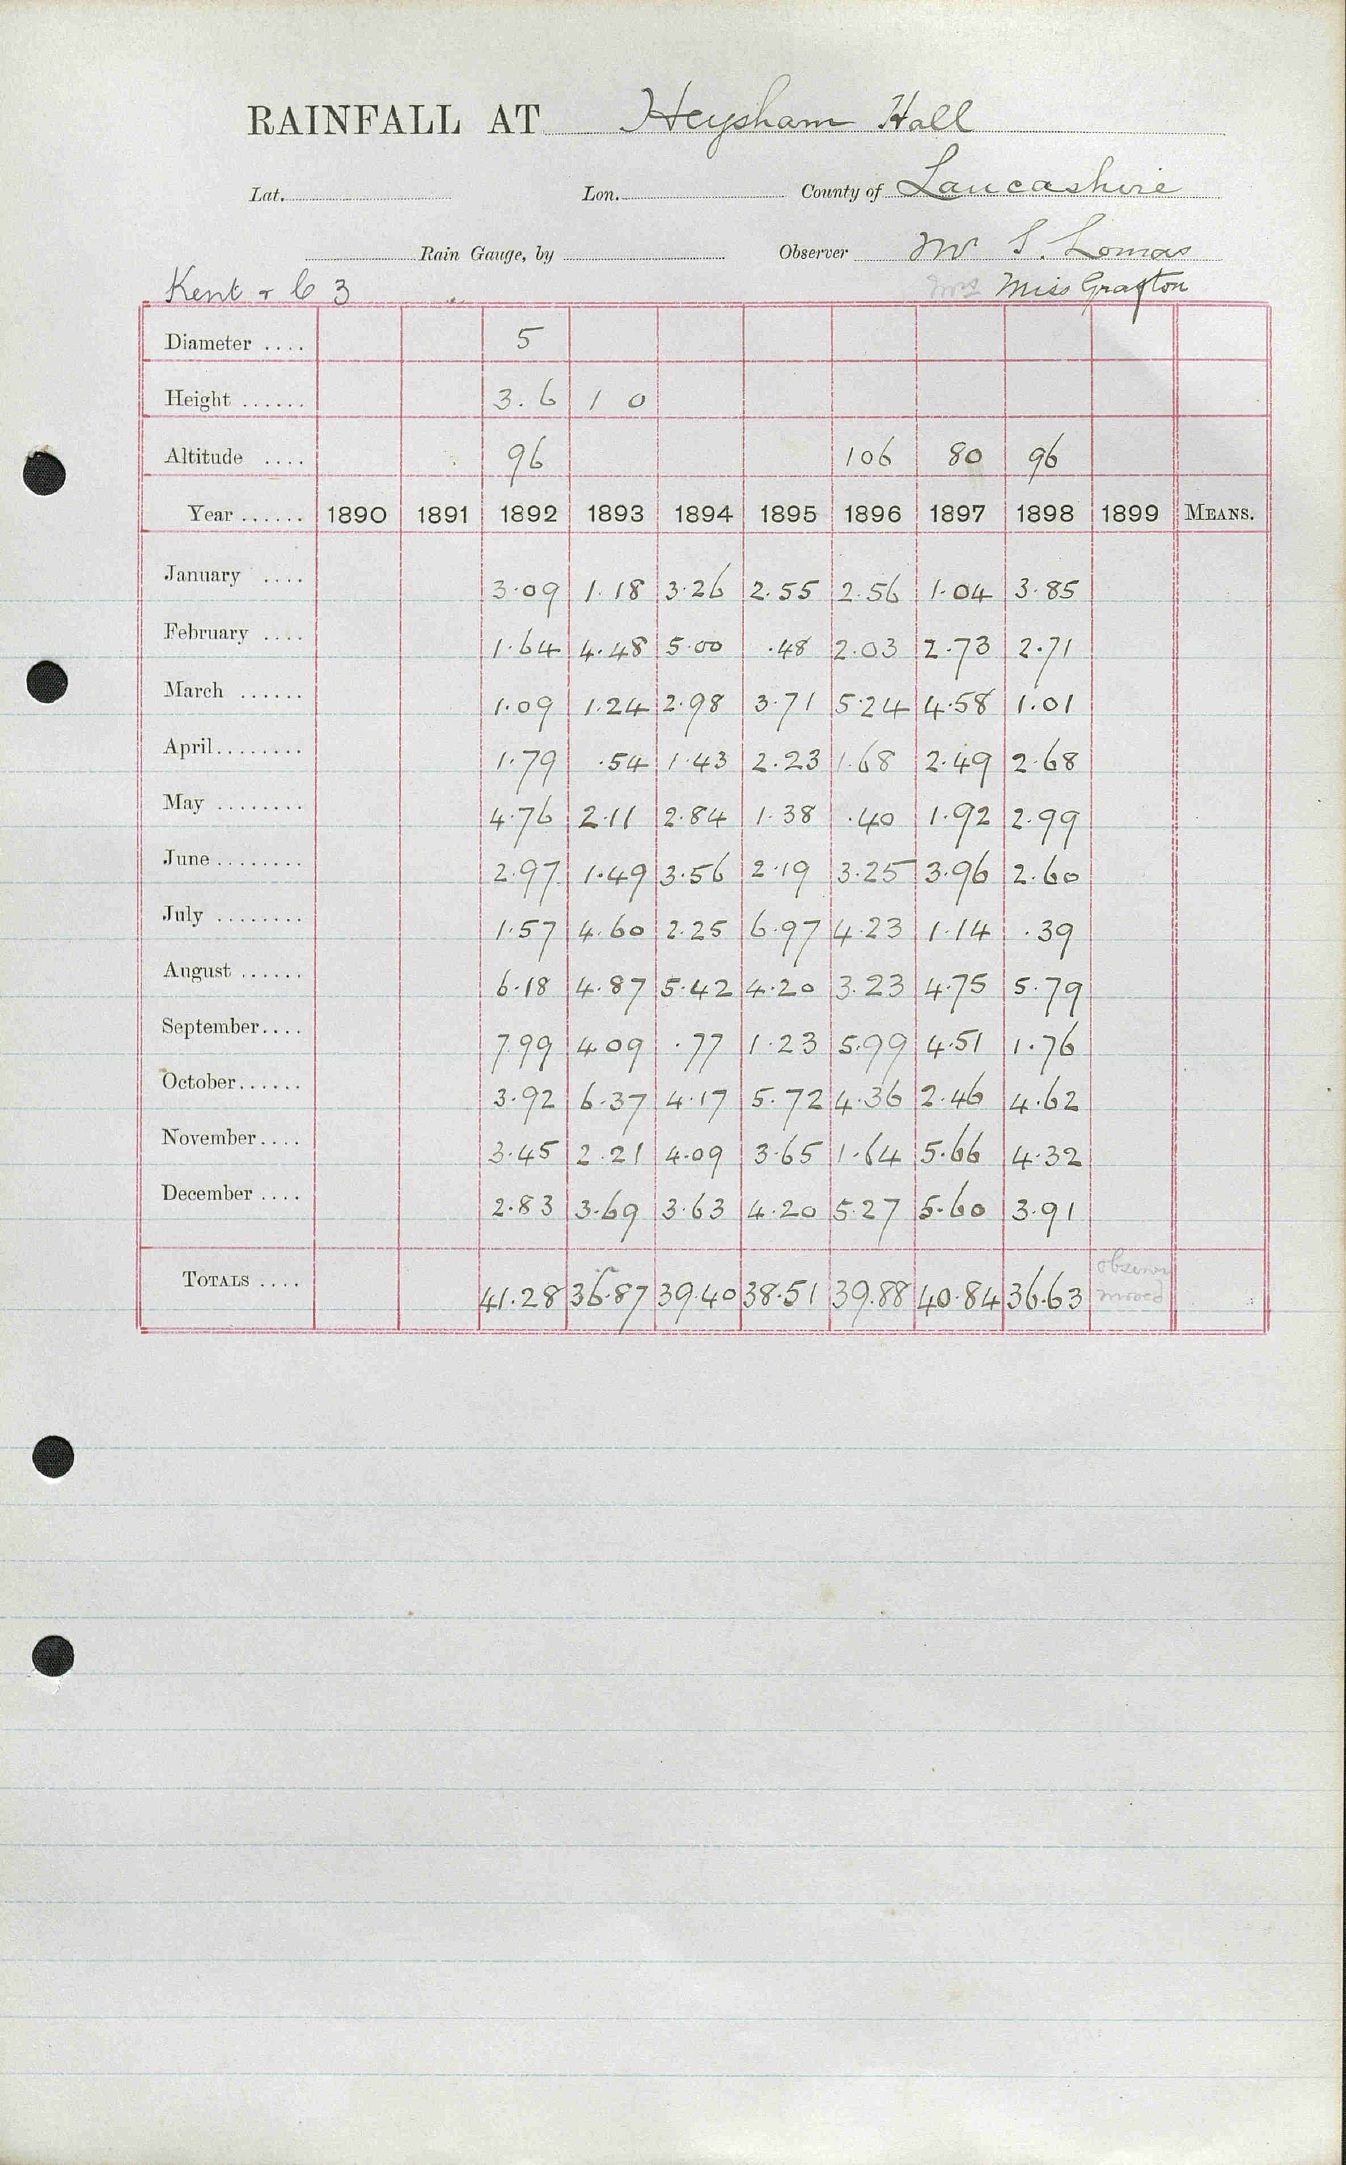 RAINFALL AT Heysham Hall
Lat. Lon. County of Lancashire
Rain Gauge, by Observer Mr S. Lomas
Kent & C 3 Mrs Miss Grafton
Diameter .... 5
Height ...... 3.6 1 0
Altitude .... 96 106 80 96
Year ...... 1890 1891 1892 1893 1894 1895 1896 1897 1898 1899 MEANS.
January .... 3.09 1.18 3.26 2.55 2.56 1.04 3.85
February .... 1.64 4.48 5.00 .48 2.03 2.73 2.71
March ...... 1.09 1.24 2.98 3.71 5.24 4.58 1.01
April........ 1.79 .54 1.43 2.23 1.68 2.49 2.68
May ........ 4.76 2.11 2.84 1.38 .40 1.92 2.99
June ........ 2.97 1.49 3.56 2.19 3.25 3.96 2.60
July ........ 1.57 4.60 2.25 6.97 4.23 1.14 .39
August ...... 6.18 4.87 5.42 4.20 3.23 4.75 5.79
September.... 7.99 4.09 .77 1.23 5.99 4.51 1.76
October...... 3.92 6.37 4.17 5.72 4.36 2.46 4.62
November.... 3.45 2.21 4.09 3.65 1.64 5.66 4.32
December .... 2.83 3.69 3.63 4.20 5.27 5.60 3.91
TOTALS .... 41.28 36.87 39.40 38.51 39.88 40.84 36.63 observer
moved